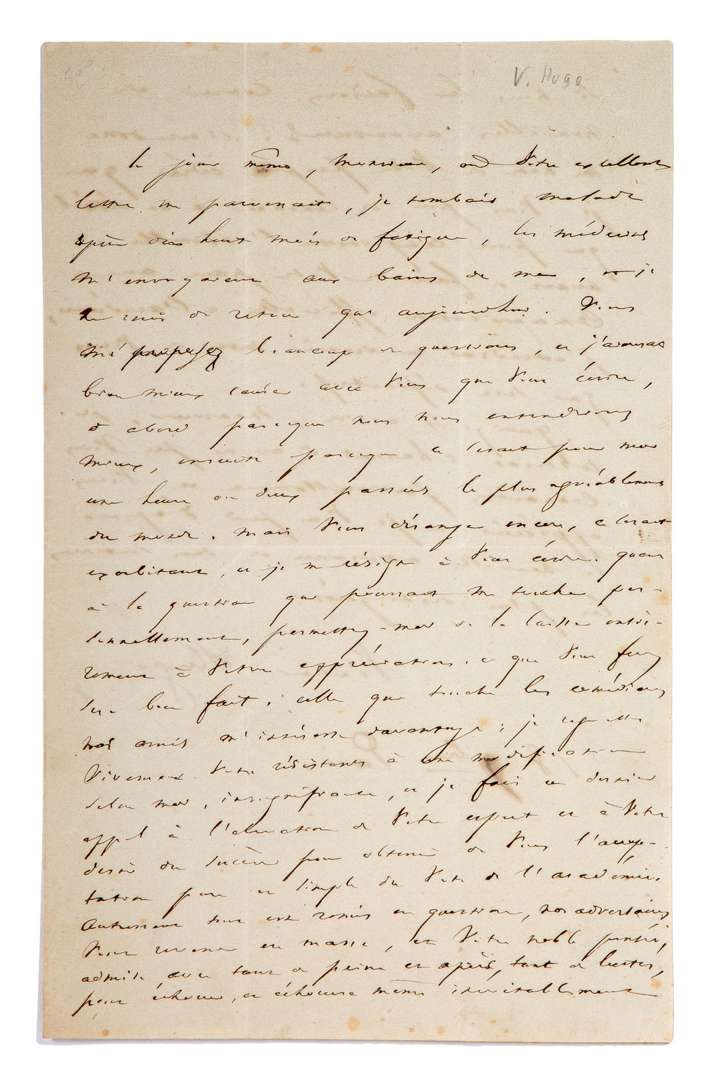 V. Hugo
Le jour même, Monsieur, où votre excellente
lettre me parvenait, je tombais malade
après dix huit mois de fatigue, les médecins
m'envoyaient aux bains de mer, et je
ne suis de retour que aujourd'hui. Vous
me proposez beaucoup de questions, et j'aimerais
bien mieux causer avec vous que vous écrire,
d'abord parceque nous nous entendrions
mieux, ensuite parceque ce serait pour moi
une heure ou deux passées le plus agréablement
du monde. Mais vous déranger encore, ce serait
exorbitant, et je me résigne à vous écrire. quant
à la question qui pourrait me toucher per-
sonnellement, permettez-moi de la laisser entiè-
rement à votre appréciation. ce que vous ferez
sera bien fait. celle qui touche les comédiens
nos amis m'intéresse davantage; je regrette
vivement votre résistance à une modification
selon moi, insignifiante, et je fais un dernier
appel à l'élévation de votre esprit et à votre
désir du succès pour obtenir de vous l'accep-
tation pure et simple du vote de l'académie.
Autrement tout est remis en question, nos adversaires
vont revenir en masse, et votre noble pensée,
admise avec tant de peine et après tant de luttes,
peut échouer, et échouera même inévitablement